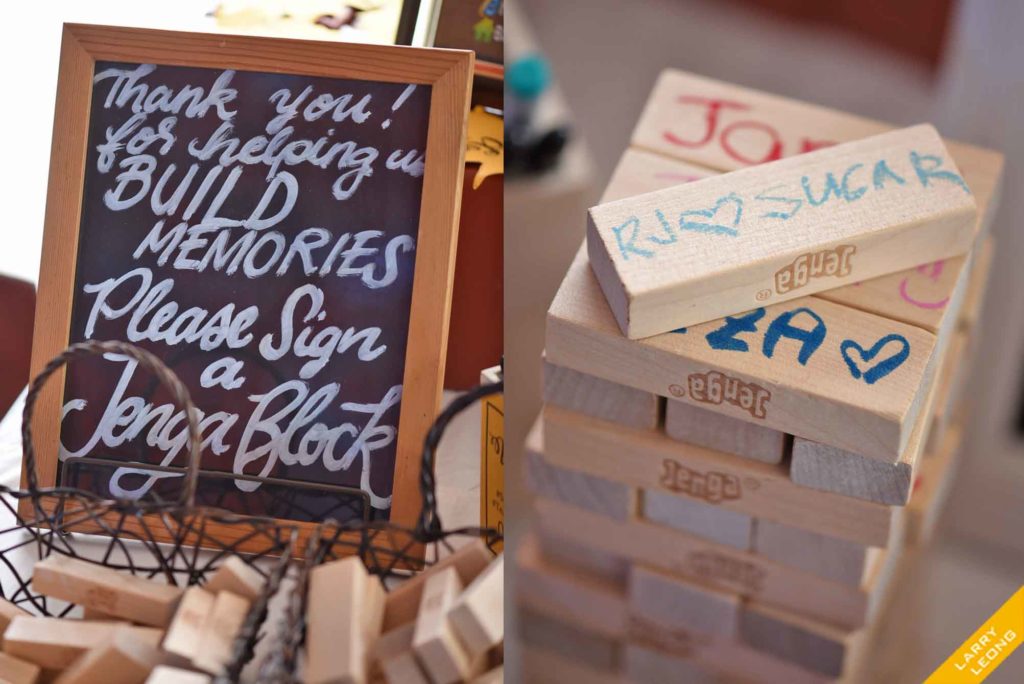 Thank you!
for helping us
BUILD
MEMORIES
Please Sign
a
Jenga Block
RJ♡SUGAR
Jenga®
ZA♡
Jenga®
Jenga
Jenga
LARRY
LEONG